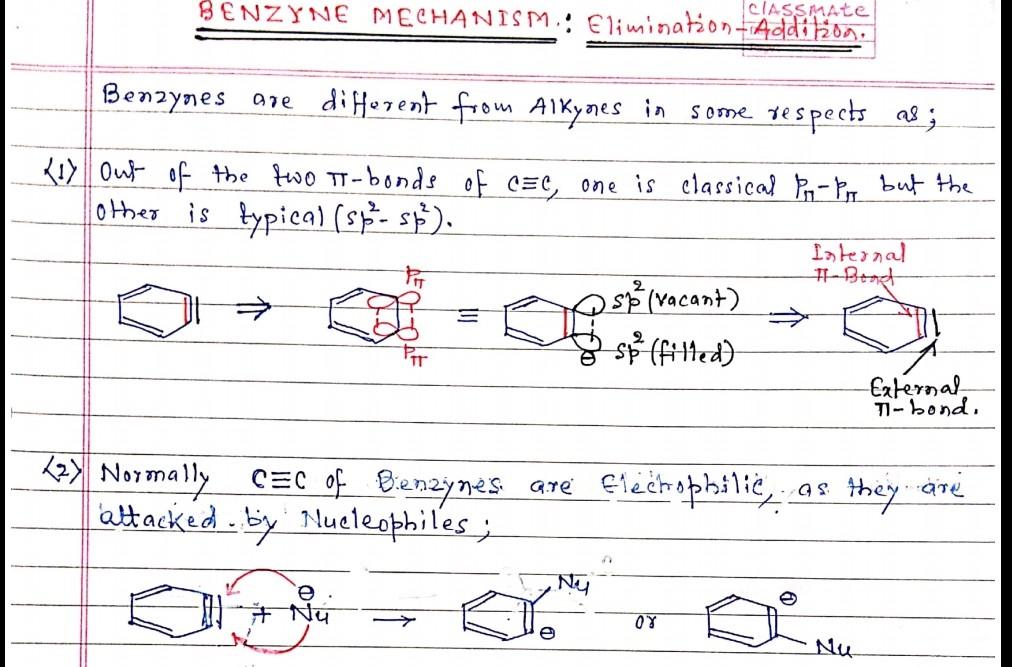 CLASSMATE
BENZYNE MECHANISM.: Elimination-Addition.
Benzynes are different from Alkynes in some respects as;
<1> Out of the two π-bonds of C≡C, one is classical Pπ-Pπ but the
other is typical (sp²-sp²).
Internal
π-Bond
Pπ
sp² (vacant)
⇒ ≡ ⇒
Pπ
⊖ sp² (filled)
External
π-bond.
<2> Normally C≡C of Benzynes are Electrophilic, as they are
attacked by Nucleophiles;
⊖ Nu ⊖
+ Nu → ⊖ or Nu